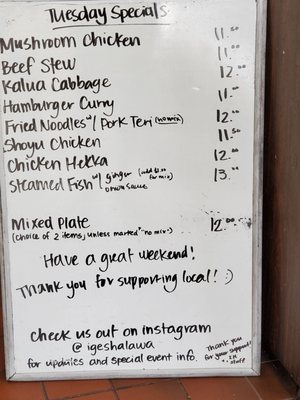 Tuesday Specials
Mushroom Chicken 11.50
Beef Stew 11.00
Kalua Cabbage 12.00
Hamburger Curry 11.00
Fried Noodles w/ Pork Teri (no mix) 12.00
Shoyu Chicken 11.50
Chicken Hekka 12.00
Steamed Fish w/ ginger onion sauce (add $2.00 for mix) 13.00
Mixed Plate 12.00
(choice of 2 items, unless marked "no mix")
Have a great weekend!
Thank you for supporting local! :)
Check us out on instagram
@ igeshalawa
for updates and special event info.
Thank you
for your support!